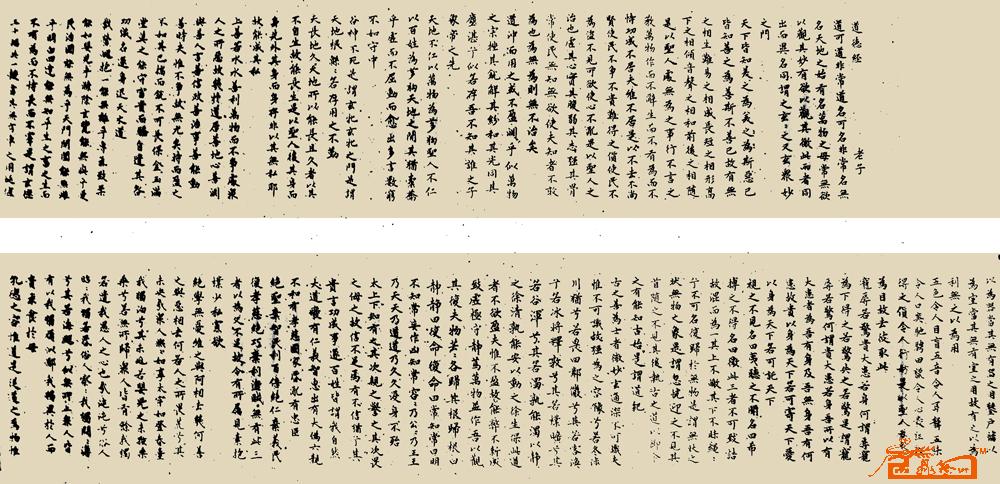 道德經 老子
道可道非常道名可名非常名無
名天地之始有名萬物之母常無欲
以觀其妙常有欲以觀其徼此兩者同
出而異名同謂之玄玄之又玄眾妙
之門
天下皆知美之為美之為斯惡已
皆知善之為善斯不善已故有無
之相生難易之相成長短之相形高
下之相傾音聲之相和前後之相隨
是以聖人處無為之事行不言之
教萬物作而不辭生而不有為而不
恃功成不居夫惟不居是以不去不尚
賢使民不爭不貴難得之貨使民不
為盜不見可欲使心不亂是以聖人之
治也虛其心實其腹弱其志強其骨
常使民無知無欲使夫知者不敢
為也為無為則無不治矣
道沖而用之或不盈淵乎似萬物
之宗挫其銳解其紛和其光同其
塵湛兮似若存吾不知其誰之子
象帝之先
天地不仁以萬物為芻狗聖人不仁
以百姓為芻狗天地之間其猶橐籥
乎虛而不屈動而愈出多言數窮
不如守中
谷神不死是謂玄牝玄牝之門是謂
天地根綿綿若存用之不勤
天長地久天地所以能長且久者以其
不自生故能長生是以聖人後其身而
身先外其身而身存非以其無私耶
故能成其私
上善若水水善利萬物而不爭處眾
人之所惡故幾於道居善地心善淵
與善人言善信政善治事善能動
善時夫惟不爭故無尤矣持而盈之
不如其已揣而銳不可長保金玉滿
堂莫之能守富貴而驕自遺其咎
功成名遂身退天之道
載營魄抱一能無離乎專氣致柔
能如嬰兒乎滌除玄覽能無疵乎愛
民治國能無為乎天門開闔能無雌
乎明白四達能無知乎生之畜之生而
不有為而不恃長而不宰是謂玄德
三十輻共一轂當其無有車之用埏埴
以為器當其無有器之用鑿戶牖以
為室當其無有室之用故有之以為
利無之以為用
五色令人目盲五音令人耳聾五味
令人口爽馳騁田獵令人心發狂難
得之貨令人行妨是以聖人為腹不
為目故去彼取此
寵辱若驚貴大患若身何謂寵辱
為下得之若驚失之若驚是謂寵
辱若驚何謂貴大患若身吾所以有
大患為吾有身及吾無身吾有何
患故貴以身為天下者若可寄天下愛
以身為天下者若可託天下
視之不見名曰夷聽之不聞名曰希
搏之不得名曰微此三者不可致詰
故混而為一其上不皦其下不昧繩
兮不可名復歸於無物是謂無狀之
狀無物之象是謂惚恍迎之不見其
首隨之不見其後執古之道以御今
之有能知古始是謂道紀
古之善為士者微妙玄通深不可識夫
惟不可識故強為之容豫兮若冬涉
川猶兮若畏四鄰儼兮其若客渙
兮若冰將釋敦兮其若樸曠兮其
若谷渾兮其若濁孰能濁以靜
之徐清孰能安以動之徐生保此道
者不欲盈夫惟不盈故能弊不新成
致虛極守靜篤萬物並作吾以觀
其復夫物芸芸各歸其根歸根曰
靜靜曰復命復命曰常知常曰明
不知常妄作凶知常容容乃公公乃王王
乃天天乃道道乃久沒身不殆
太上下知有之其次親之譽之其次畏
之侮之故信不足焉有不信猶兮其
貴言功成事遂百姓皆謂我自然
大道廢有仁義智慧出有大偽六親
不和有孝慈國家昏亂有忠臣
絕聖棄智民利百倍絕仁棄義民
復孝慈絕巧棄利盜賊無有此三
者以為文不足故令有所屬見素抱
樸少私寡欲
絕學無憂唯之與阿相去幾何善
之與惡相去何若人之所畏荒兮其
未央哉眾人熙熙如享太牢如登春臺
我獨泊兮其未兆如嬰兒之未孩
乘乘兮若無所歸眾人皆有餘我獨
若遺我愚人之心也哉沌沌兮俗人
昭昭我獨若昏俗人察察我獨悶悶
兮其若海飂兮似無所止眾人皆
有以我獨頑似鄙我獨異於人而
貴求食於母
孔德之容惟道是從道之為物惟